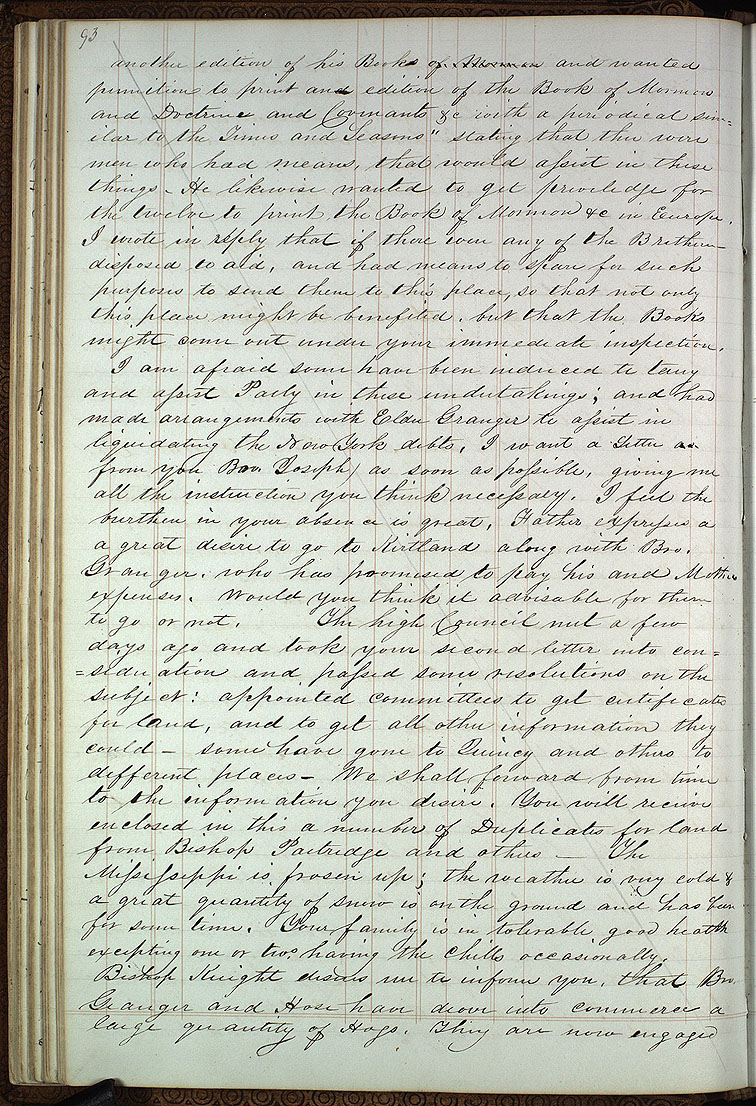 93
another edition of his Books of Mormon and wanted
permition to print and edition of the Book of Mormon
and Doctrine and Covinants &c with a periodical sim=
ilar to the Times and Seasons" stating that there were
men who had means, that would assist in these
things. He likewise wanted to get priviledge for
the twelve to print the Book of Mormon &c in Europe.
I wrote in reply that if there were any of the Brethern
disposed to aid, and had means to spare for such
purposes to send them to this place, so that not only
this place might be benefited. but that the Books
might come out under your immediate inspection.
I am afraid some have been induced to tarry
and assist Parly in these undertakings; and had
made arrangements with Elder Granger to assist in
liquidating the New York debts. I want a letter
from you Bro. Joseph, as soon as possible, giving me
all the instruction you think necessary. I feel the
burthen in your absence is great. Father expresses a
a great desire to go to Kirtland along with Bro.
Granger. who has proomised to pay his and Mothers
expenses. Would you think it advisable for them
to go or not. The high Council met a few
days ago and took your second letter into con=
=sideration and passed some resolutions on the
subject: appointed committees to get certificates
for land, and to get all other information they
could – some have gone to Quincy and others to
different places – We shall forward from time
to the information you desire. You will recieve
enclosed in this a number of Duplicates for land
from Bishop Partridge and others — The
Mississippi is frosen up; the weather is very cold &
a great quantity of snow is on the ground and has been
for some time. Your family is in tolerable good health
excepting one or two having the chills occasionally.
Bishop Knight desires me to inform you, that Bro.
Granger and Hose have drove into commerce a
large quantity of Hogs. They are now engaged